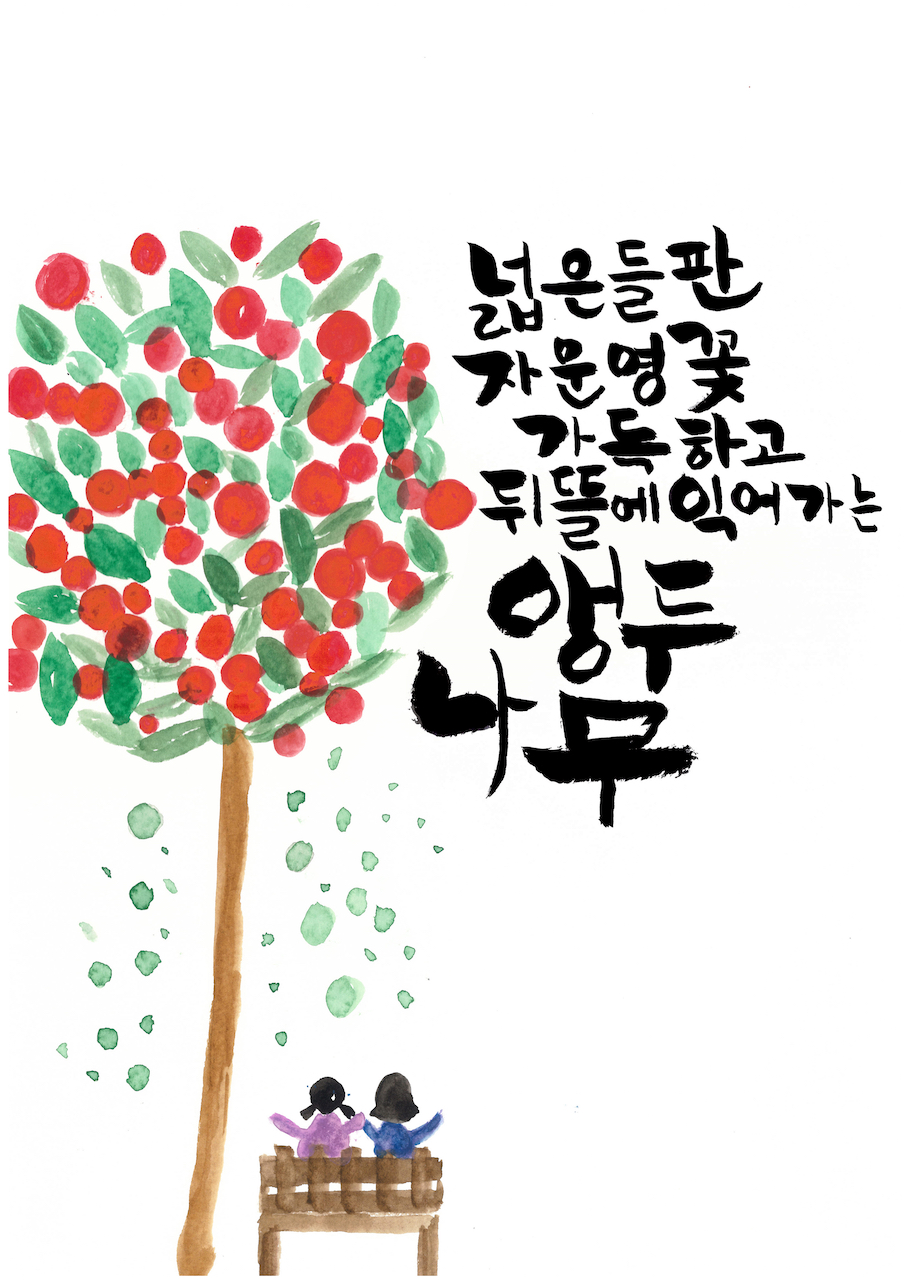 넓은들판
자운영꽃
가득하고
뒤뜰에익어가는
앵두
나무